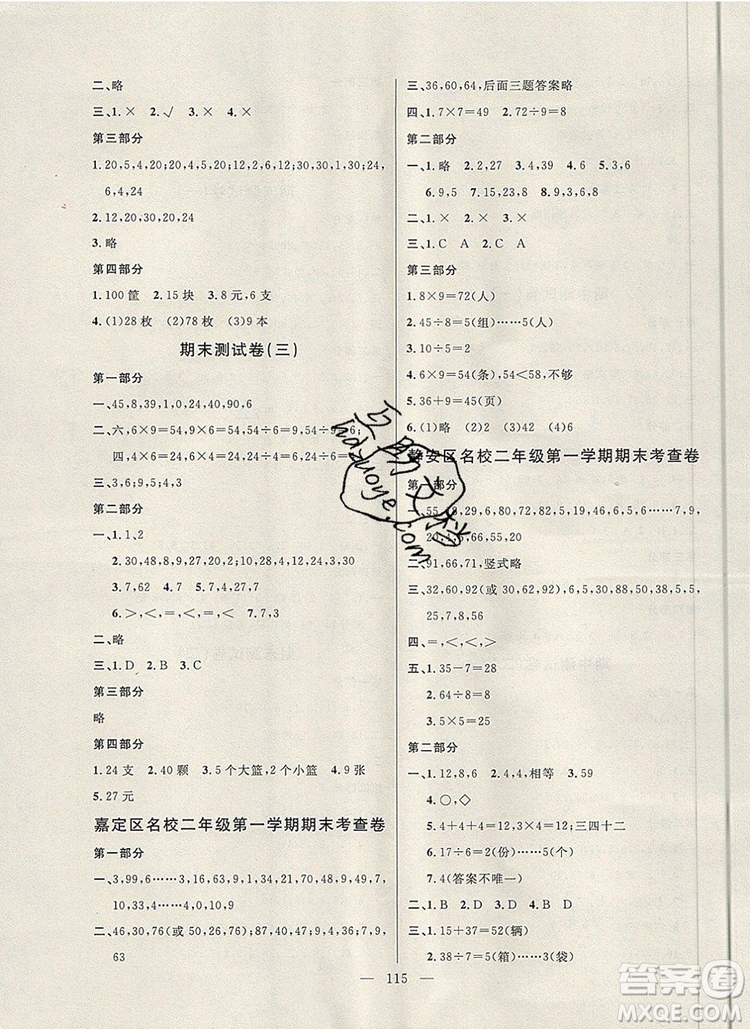 二、略
三、1.× 2.√ 3.× 4.×
第三部分
1.20,5,4,20;20,4,5,20;12;30,30;30,24,
6,4,24
2.12,20,30,20,24
3.略
第四部分
1.100筐 2.15块 3.8元,6支
4.(1)28枚 (2)78枚 (3)9本
期末测试卷(三)
第一部分
一、45,8,39,1,0,24,40,90,6
二、六,6×9=54,9×6=54,54÷6=9,54÷9=6;
四,4×6=24,6×4=24,24÷6=4,24÷4=6
三、3,6;9,5;4,3
第二部分
一、1.1,2
2.30,48,8,9,17,20,4,30,24,12,43,30
3.7,62 4.7 5.9,45
6.>,<,=,=,<,< 7.7,3
二、略
三、1.D 2.B 3.C
第三部分
略
第四部分
1.24支 2.40颗 3.5个大篮,2个小篮 4.9张
5.27元
嘉定区名校二年级第一学期期末考查卷
第一部分
一、3,99,6……3,16,9,24,9,21,8,36,41,70,
10,33,4……4,0,10,9
二、46,30,76(或30,46,76),90,17,73,89,26,
63
三、36,60,64,后面三题答案略
四、1.7×7=49 2.72÷9=8
第二部分
一、1.略 2.2,27 3.4,39 4.6 5.3,6
6.9,5 7.15,23,8 8.4,5
二、1.× 2.× 3.× 4.×
三、1.C A 2.C A
第三部分
1.8×9=72(人)
2.45÷8=5(组)……5(人)
3.10÷5=2
4.6×9=54(条),54<58,不够
5.36+9=45(页)
6.(1)略 (2)2 (3)42 (4)6
静安区名校二年级第一学期期末考查卷
第一部分
一、55,18,29,6,80,72,82,5,19,46,6……7,9,
20,1,5,66,55,20
二、91,66,71,竖式略
三、32,60,92(或30,62,92),30,88,50,38,5,5,
25,7,8,56
四、=,<,<,>
五、1.35-7=28
2.64÷8=8
3.5×5=25
第二部分
一、1.12,8,6 2.4,4,相等 3.24
4.○,◇
5.4+4+4,4×3,3×4;三四十二
6.17÷6=2(份)……5(个)
7.4(答案不唯一)
二、1.B 2.D 3.B D
三、1.15+37=52(辆)
2.43÷8=5(箱)……3(袋)
115
互助文档
hdzuoye.com
答案圈
MXQE.COM